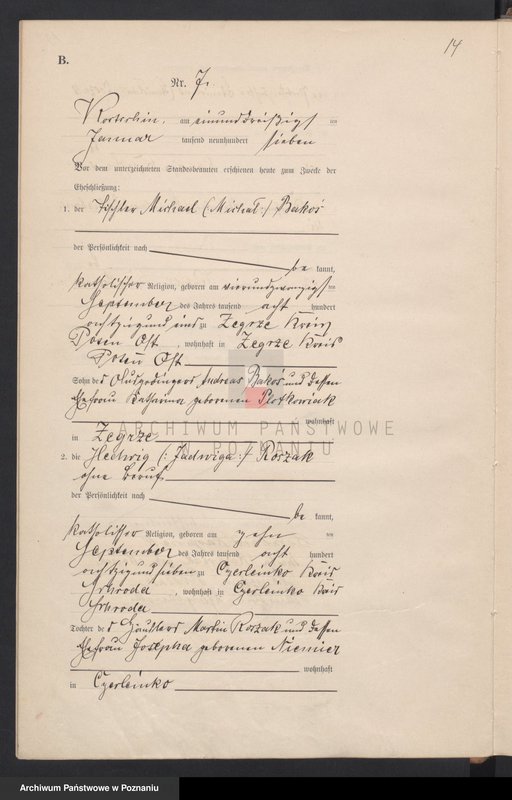 14
B.
Nr. 7.
am einunddreißigsten
Januar tausend neunhundert sieben
Vor dem unterzeichneten Standesbeamten erschienen heute zum Zwecke der
Eheschließung:
1. der Tischler Michael (: Michał :) Bakoś
der Persönlichkeit nach
be kannt,
katholischer Religion, geboren am vierundzwanzigsten
September des Jahres tausend acht hundert
achtzig und eins zu Zegrze Kreis
Posen Ost, wohnhaft in Zegrze Kreis
Posen Ost
Sohn des Andreas Bakoś und dessen
Ehefrau Katharina geborenen Plotkowiak
wohnhaft
in Zegrze
2. die Hedwig (: Jadwiga :) Roszak
ohne Beruf
der Persönlichkeit nach
be kannt,
katholischer Religion, geboren am zehnten
September des Jahres tausend acht hundert
achtzig und sieben zu Czerleinko Kreis
Schroda, wohnhaft in Czerleinko Kreis
Schroda
Tochter des Häuslers Martin Roszak und dessen
Ehefrau Josepha geborenen Niemier
wohnhaft
in Czerleinko
ARCHIWUM PAŃSTWOWE
W POZNANIU
Archiwum Państwowe w Poznaniu